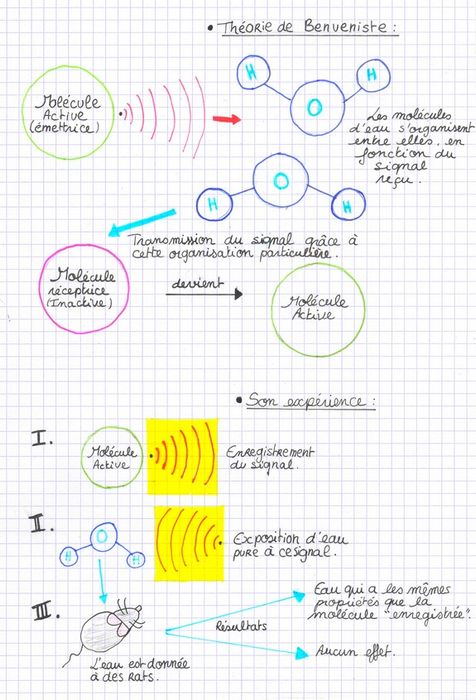 • Théorie de Benveniste :
Molécule
Active
(émettrice)
H
H
O
Les molécules
d'eau s'organisent
entre elles, en
fonction du
signal
reçu.
O
H
H
Transmission du signal grâce à
cette organisation particulière.
Molécule
réceptrice
(Inactive)
devient
Molécule
Active
• Son expérience :
I.
Molécule
Active
Enregistrement
du signal.
II.
O
H
H
Exposition d'eau
pure à ce signal.
III.
L'eau est donnée
à des Rats.
Résultats
Eau qui a les mêmes
propriétés que la
molécule "enregistrée".
Aucun effet.